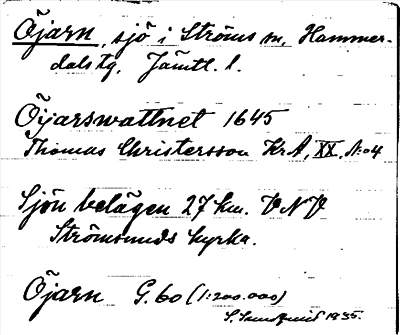 Öjarn, sjö i Ströms sn, Hammer-
dals tg. Jämtl. l.
Öijarswattnet 1645
Thomas Christersson Kr A, XX, N:o 4
Sjön belägen 27 km. VNV
Strömsunds kyrka.
Öjarn G. 60 (1:200.000)
S. Sundquist 1935.